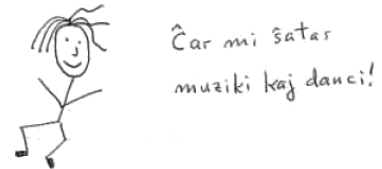 Ĉar mi ŝatas
muziki kaj danci!